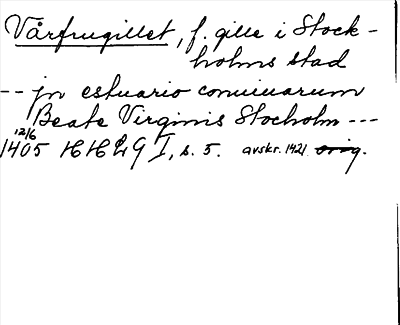 Vårfrugillet, f. gille i Stock-
holms stad
-- jn estuario conuiuarum
Beate Virginis Stocholm ---
12/6
1405 HHLG I, s. 5. avskr. 1421 orig.